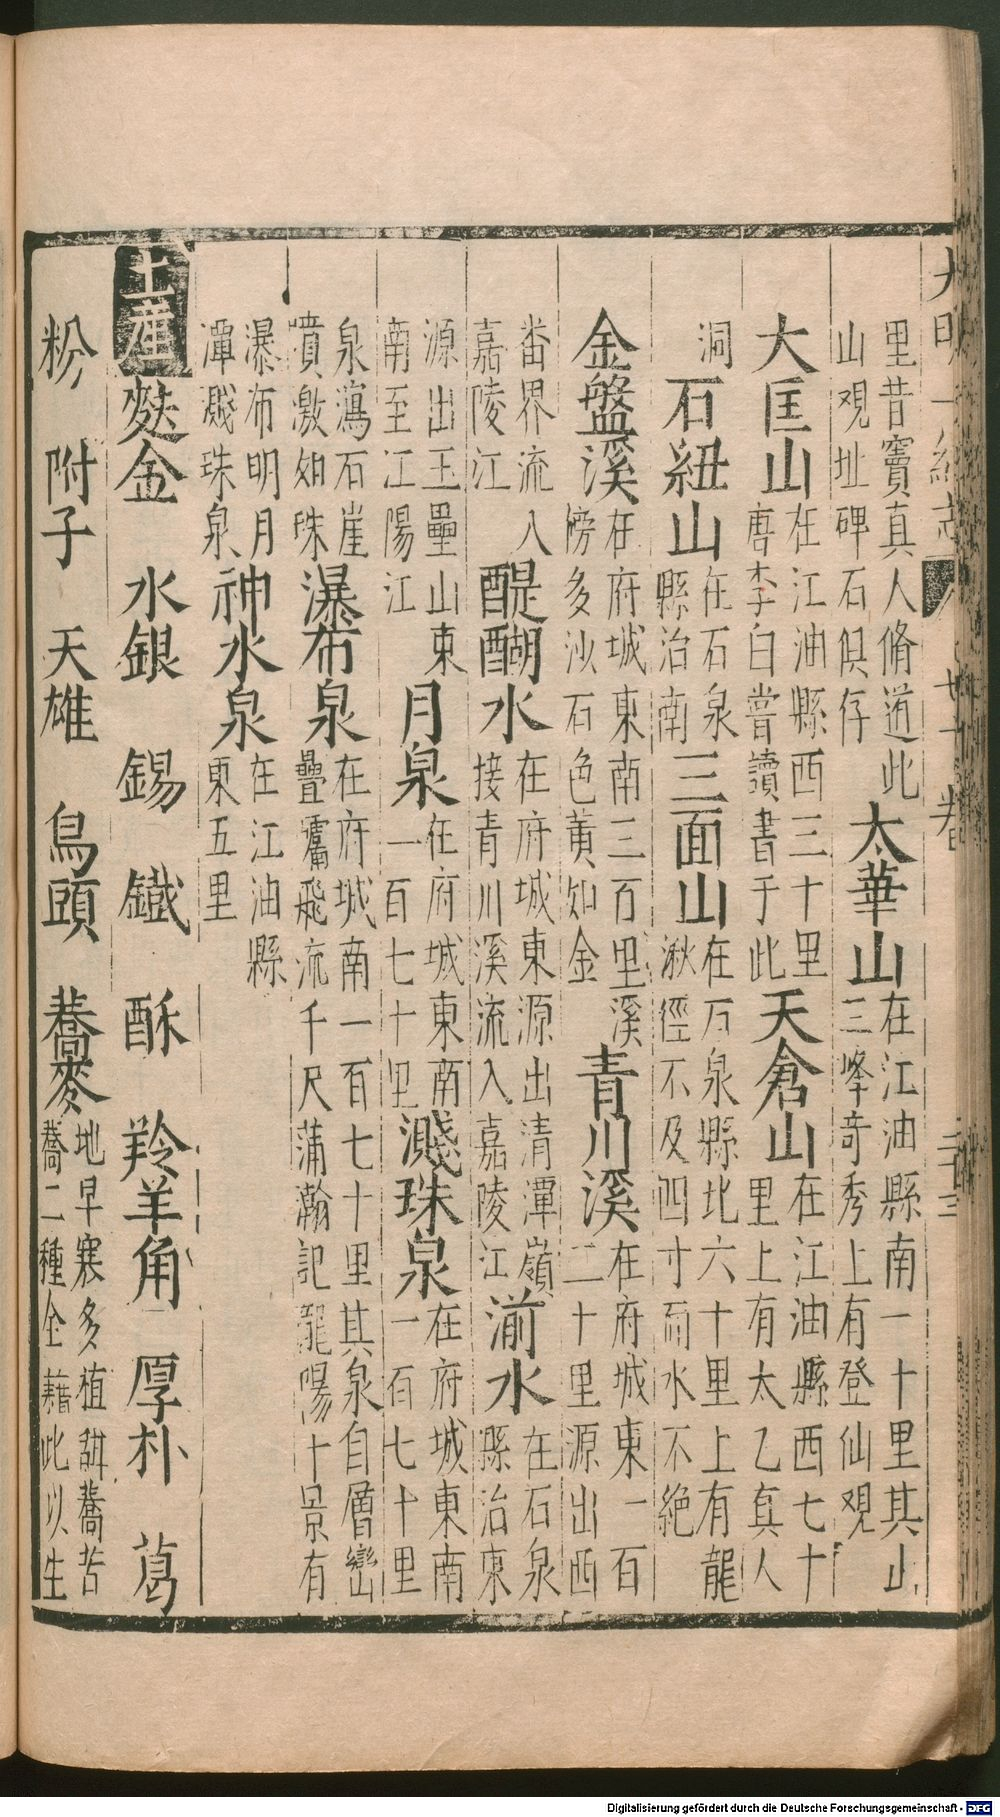 大明一統志 卷 三十三
里昔竇真人脩道此山觀址碑石俱存 太華山 在江油縣南一十里其山三峰奇秀上有登仙觀
大匡山 在江油縣西三十里唐李白嘗讀書于此 天倉山 在江油縣西七十里上有太乙真人
洞 石紐山 在石泉縣治南 三面山 在石泉縣北六十里上有龍湫徑不及四寸而水不絕
金盤溪 在府城東南三百里溪傍多沙石色黃如金 青川溪 在府城東一百二十里源出西
畨界流入嘉陵江 醍醐水 在府城東源出清潭嶺接青川溪流入嘉陵江 湔水 在石泉縣治東
源出玉壘山東南至江陽江 月泉 在府城東南一百七十里 濺珠泉 在府城東南一百七十里
泉瀉石崖噴激如珠 瀑布泉 在府城南一百七十里其泉自層巒疊巘飛流千尺蒲瀚記龍陽十景有
瀑布明月潭濺珠泉 神水泉 在江油縣東五里
土產 麩金 水銀 錫 鐵 酥 羚羊角 厚朴 葛
粉 附子 天雄 烏頭 蕎麥 地早寒多植甜蕎苦蕎二種全藉此以生
Digitalisierung gefördert durch die Deutsche Forschungsgemeinschaft - DFG